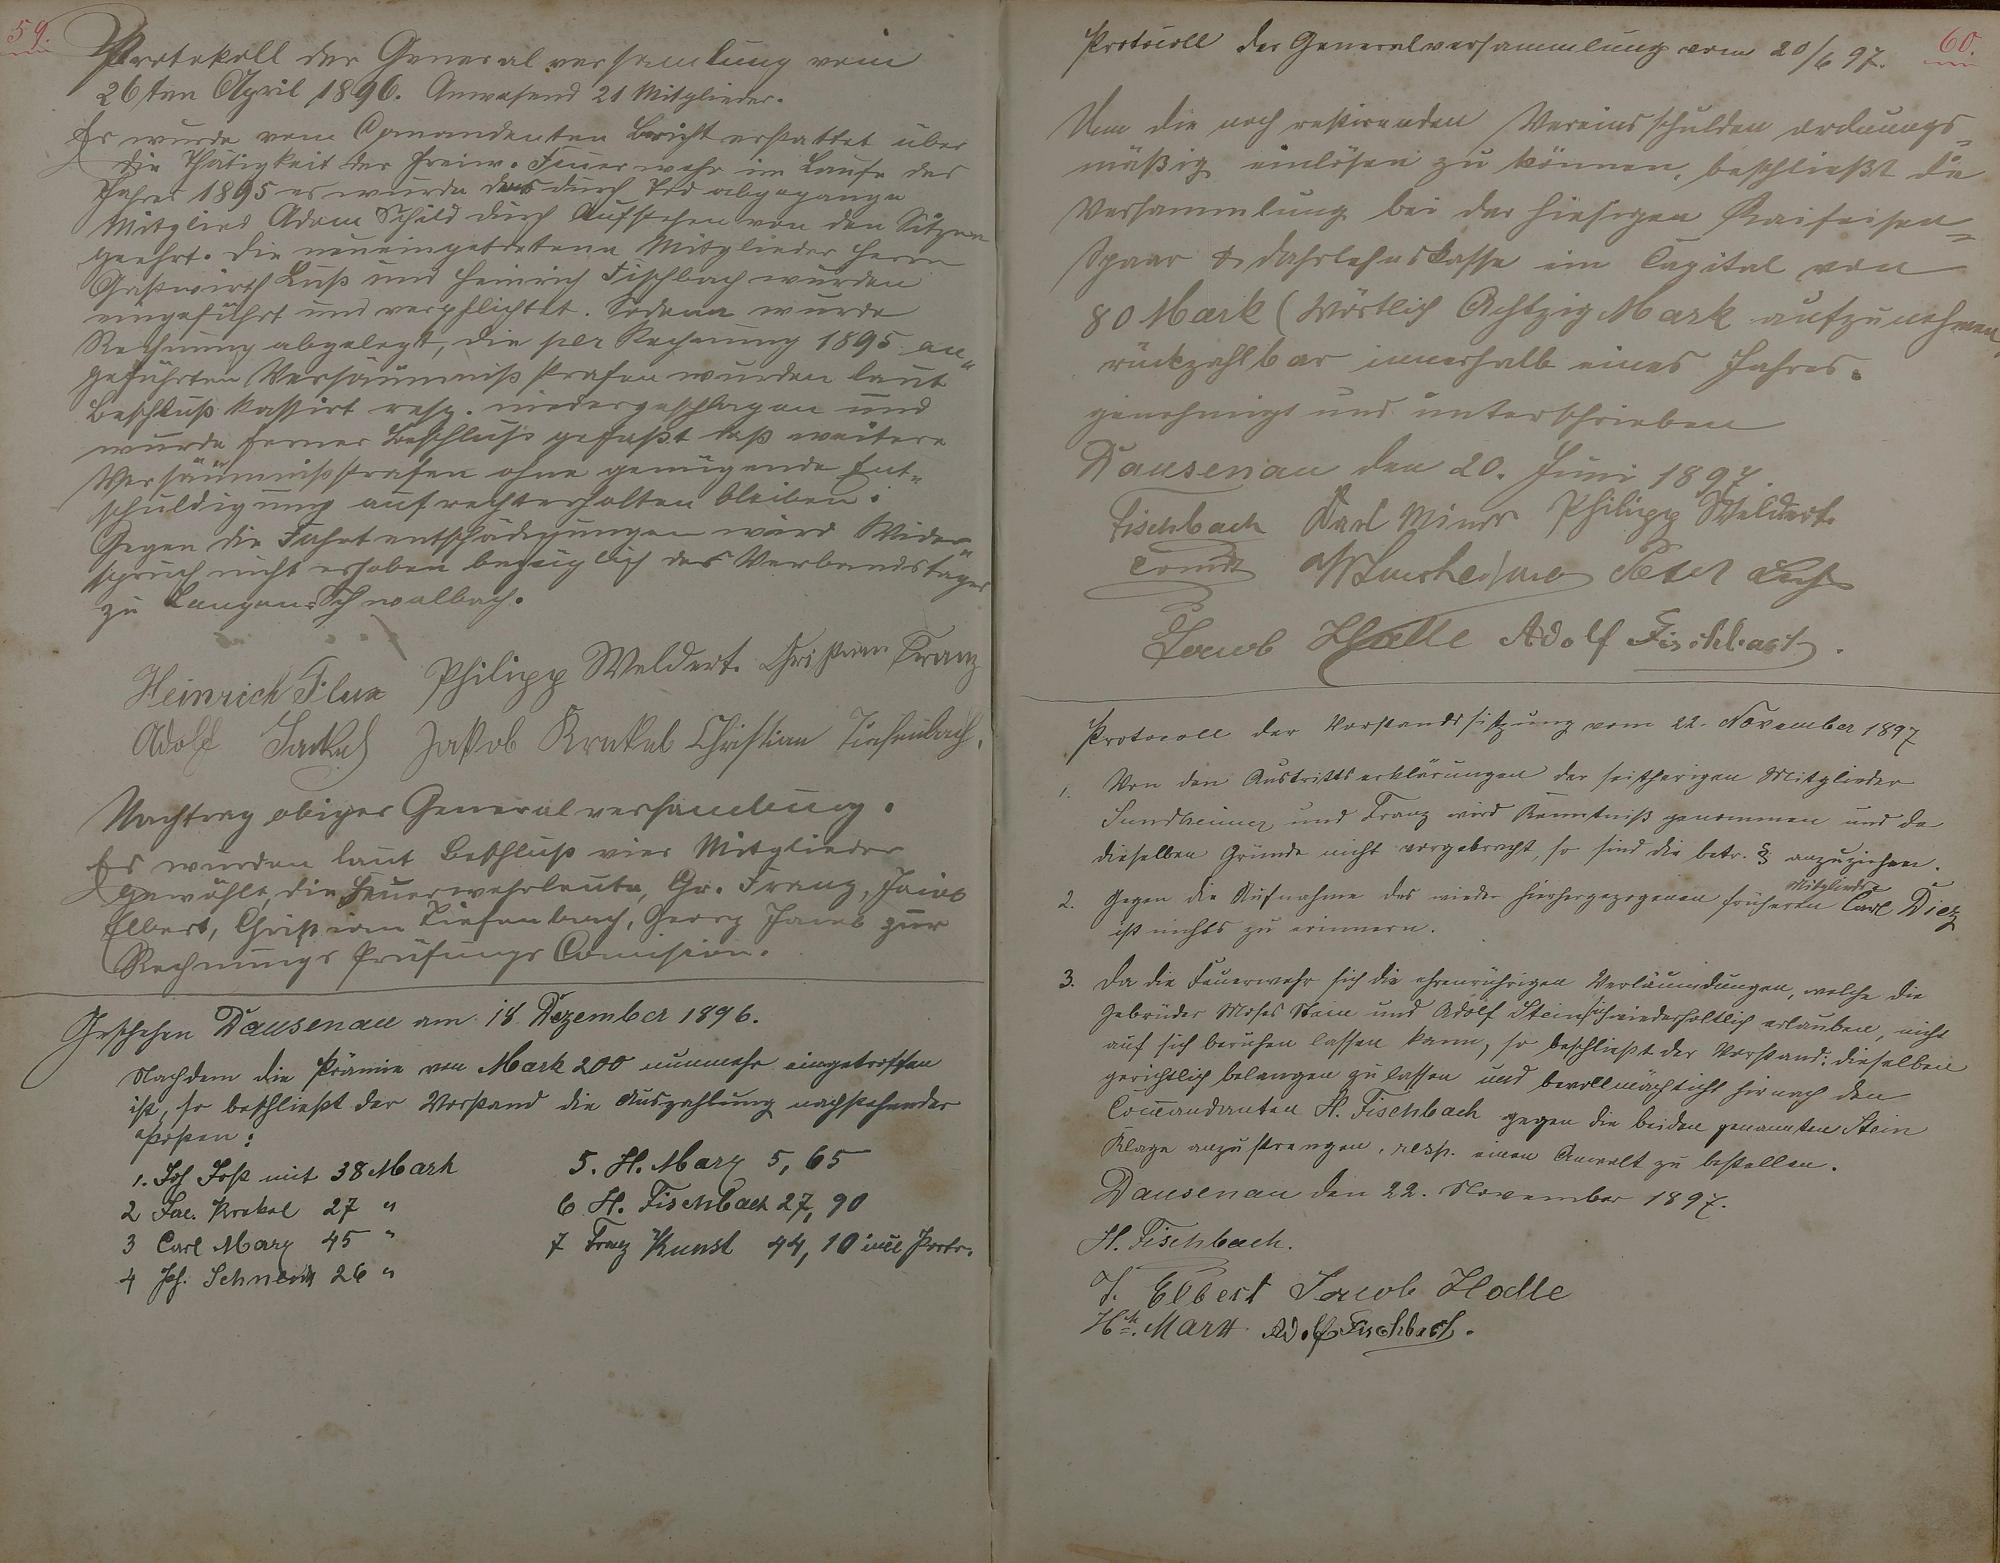 59.
Protokoll der Generalversamlung vom
26ten April 1896. Anwesend 21 Mitglieder.
Es wurde vom Comandenten Bericht erstattet über
die Thätigkeit der freiw. Feuerwehr im Laufe des
Jahres 1895 es wurde das durch Tod abgegangene
Mitglied Adam Schild durch Aufstehen von den Sitzen
geehrt. Die neueingetretene Mitglieder Herrn
Gastwirth Luß und Heinrich Fischbach wurden
eingeführt und verpflichtet. Sodann wurde
Rechnung abgelegt, die per Rechnung 1895 an-
geführten Versäumniß strafen wurden laut
Beschluß kassirt resp. niedergeschlagen und
wurde ferner Beschluß gefaßt daß weitere
Versäumnißstrafen ohne genügende Ent-
schuldigung aufrechterhalten bleiben.
Gegen die Fahrtentschädigungen wird Wider-
spruch nicht erhoben bezüglich des Verbandstages
zu Langen-Schwalbach.
Heinrich Philipp Weldert. Christian Franz
Adolf Jakob Krekel Christian Tiefenbach.
Nachtrag obiger Generalversamlung.
Es wurden laut Beschluß vier Mitglieder
gewählt, die Feuerwehrleute, Chr. Franz, Jacob
Elbert, Christian Tiefenbach, Georg Jacob zur
Rechnungs Prüfungs Comision.
Geschehen Dausenau am 18 Dezember 1896.
Nachdem die Prämie von Mark 200 nunmehr eingetroffen
ist, so beschließt der Vorstand die Auszahlung nachstehender
Posten:
1. Joh Jost mit 38 Mark
2 Jac. Krekel 27 "
3 Carl Marx 45 "
4 Joh. Schneid 26 "
5. H. Marx 5,65
6 H. Fischbach 27,90
7 Franz Kunst 44,10 incl Porto.
60.
Protocoll der Generalversammlung vom 20/6 97.
Um die noch restirenden Vereinsschulden ordnungs-
mäßig einlösen zu können, beschließt die
Versammlung bei der hiesigen Raifeisen-
Spaar & Dahrlehnskasse ein Capital von
80 Mark (wörtlich Achtzig Mark aufzunehmen,
rückzahlbar innerhalb eines Jahres.
genehmigt und unterschrieben
Dausenau den 20. Juni 1897.
Fischbach Karl Minor Philipp Weldert.
Comdt Peter
Jacob Hodle Adolf Fischbach.
Protocoll der Vorstandssitzung vom 22. November 1897
1. Von den Austrittserklärungen der seitherigen Mitglieder
Sundheimer und Franz wird Kenntniß genommen und da
dieselben Gründe nicht vorgebracht, so sind die betr. § anzuziehen.
2. Gegen die Aufnahme des wieder hierhergezogenen früheren Mitglieds Carl Dietz
ist nichts zu erinnern.
3. Da die Feuerwehr sich die ehrenrührigen Verläumdungen, welche die
Gebrüder Moses Stein und Adolf Stein sich wiederholtlich erlauben, nicht
auf sich beruhen lassen kann, so beschließt der Vorstand: dieselben
gerichtlich belangen zu lassen und bevollmächticht hirnach den
Commandanten H. Fischbach gegen die beiden genannten Stein
Klage anzustrengen, resp. einen Anwalt zu bestellen.
Dausenau den 22. November 1897.
H. Fischbach.
J. Elbert Jacob Hodle
Hch. Marx Adolf Fischbach.